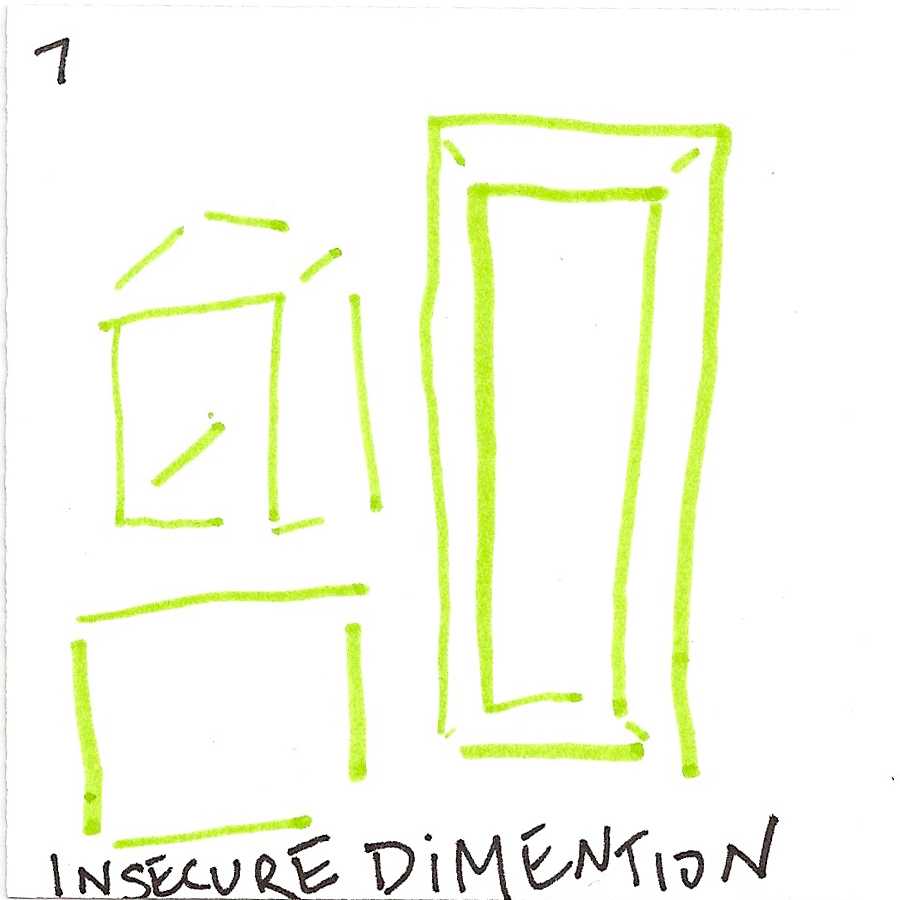 1
INSECURE DIMENTION